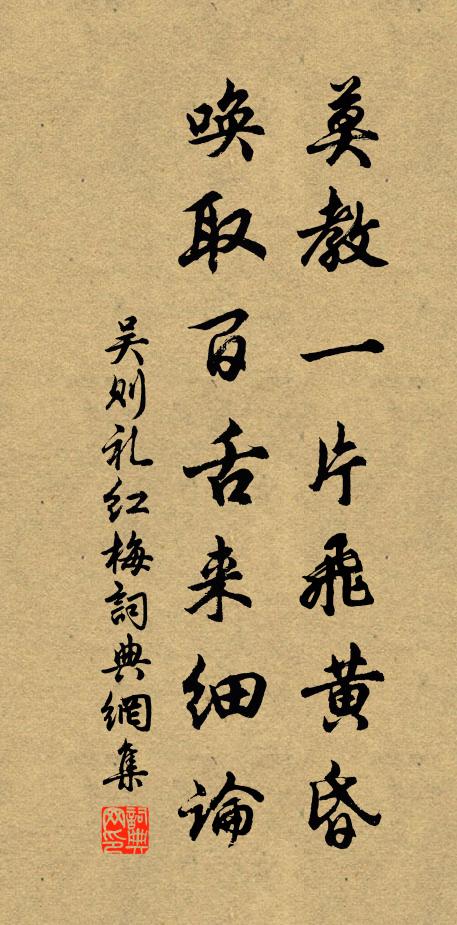 莫教一片飛黄昏
唤取百舌来細論
吴则礼红梅詞典網集
詞典網印